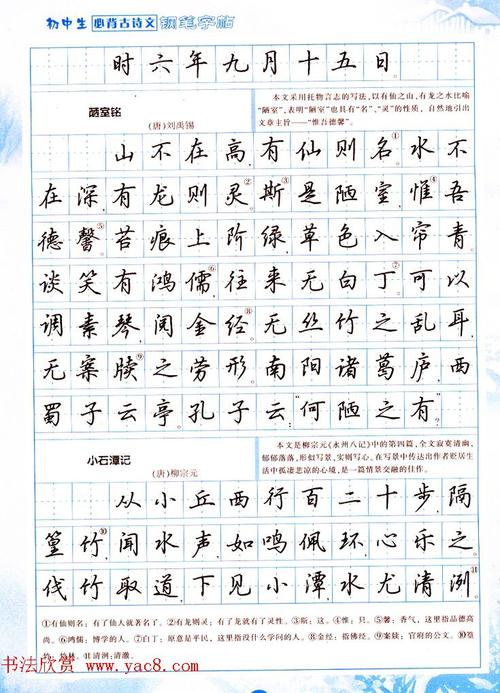 初中生 必背古诗文 钢笔字帖
时六年九月十五日
陋室铭
(唐)刘禹锡
本文采用托物言志的写法，以有仙之山，有龙之水比喻
“陋室”，表明“陋室”也具有“名”、“灵”的性质，自然地引出
文章主旨——“惟吾德馨”。
山不在高，有仙则名①。水不
在深，有龙则灵②。斯③是陋室，惟④吾
德馨⑤。苔痕上阶绿，草色入帘青。
谈笑有鸿儒⑥，往来无白丁⑦。可以
调素琴，阅金经⑧。无丝竹之乱耳，
无案牍⑨之劳形。南阳诸葛庐，西
蜀子云亭。孔子云：“何陋之有？”
小石潭记
(唐)柳宗元
本文是柳宗元《永州八记》中的第四篇，全文寂寞清幽，
郁郁落落，形似写景，实则写心。在写景中传达出作者贬居生
活中孤凄悲凉的心境，是一篇情景交融的佳作。
从小丘西行百二十步，隔
篁竹⑩，闻水声，如鸣佩环，心乐之。
伐竹取道，下见小潭，水尤清洌⑪。
①有仙则名：有了仙人就著名了。②有龙则灵：有了龙就有了灵性。③斯：这。④惟：只。⑤馨：香气，这里指品德高
尚。⑥鸿儒：博学的人。⑦白丁：原意是平民，这里指没什么学问的人。⑧金经：指佛经。⑨案牍：官府的公文。⑩篁
竹：竹林。⑪清洌：清澈。
书法欣赏 www.yac8.com